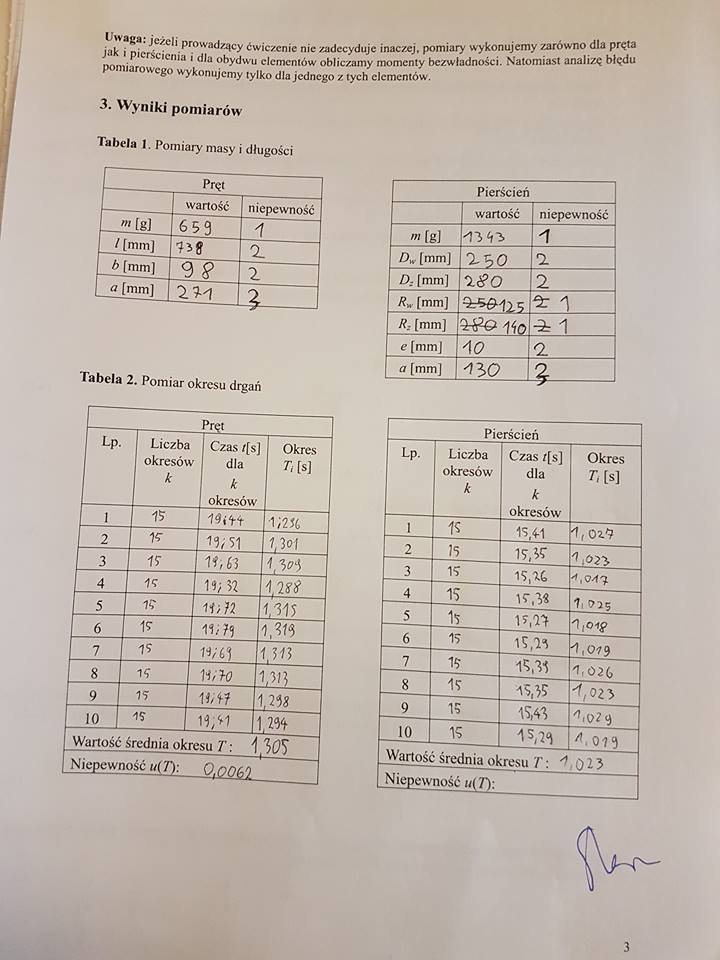 Uwaga: jeżeli prowadzący ćwiczenie nie zadecyduje inaczej, pomiary wykonujemy zarówno dla pręta
jak i pierścienia i dla obydwu elementów obliczamy momenty bezwładności. Natomiast analizę błędu
pomiarowego wykonujemy tylko dla jednego z tych elementów.
3. Wyniki pomiarów
Tabela 1. Pomiary masy i długości
Pręt
wartość niepewność
m [g] 659 1
l [mm] 738 2
b [mm] 98 2
a [mm] 271 3
Pierścień
wartość niepewność
m [g] 1343 1
Dw [mm] 250 2
Dz [mm] 280 2
Rw [mm] 250 125 2 1
Rz [mm] 280 140 2 1
e [mm] 10 2
a [mm] 130 3
Tabela 2. Pomiar okresu drgań
Pręt
Lp. Liczba okresów k Czas t[s] dla k okresów Okres Ti [s]
1 15 19;44 1,296
2 15 19;51 1,301
3 15 19;63 1,309
4 15 19;32 1,288
5 15 19;72 1,315
6 15 19;79 1,319
7 15 19;69 1,313
8 15 19;70 1,313
9 15 19;47 1,298
10 15 19;41 1,294
Wartość średnia okresu T : 1,305
Niepewność u(T): 0,0062
Pierścień
Lp. Liczba okresów k Czas t[s] dla k okresów Okres Ti [s]
1 15 15,41 1,027
2 15 15,35 1,023
3 15 15,26 1,017
4 15 15,38 1,025
5 15 15,27 1,018
6 15 15,29 1,019
7 15 15,39 1,026
8 15 15,35 1,023
9 15 15,43 1,029
10 15 15,29 1,019
Wartość średnia okresu T : 1,023
Niepewność u(T):
3